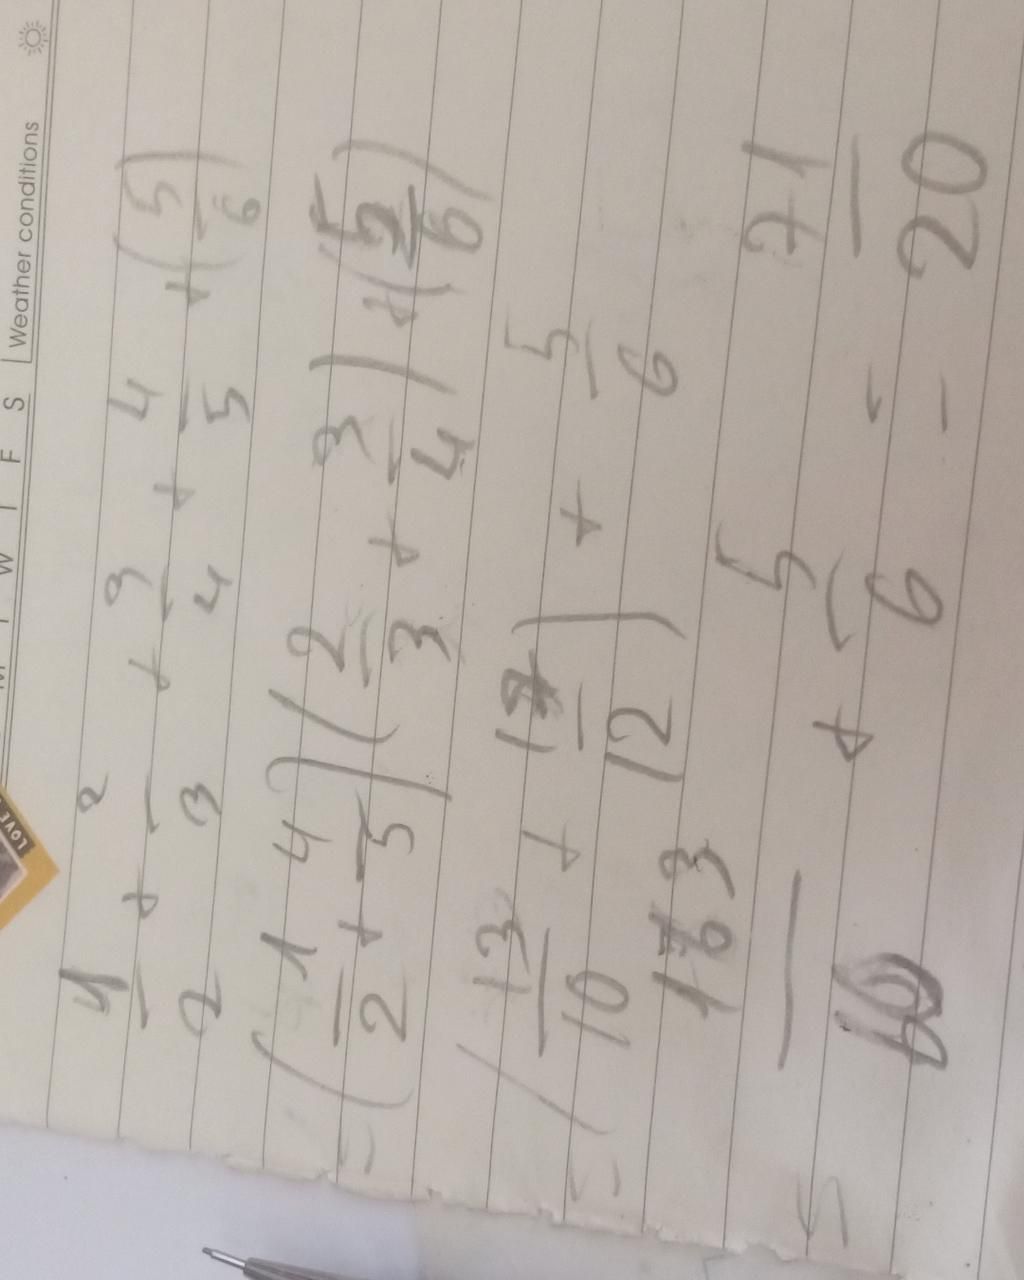 M T W T F S | Weather conditions
LOVE
1/2 + 2/3 + 3/4 + 4/5 + (5/6)
= (1/2 + 4/5) (2/3 + 3/4) + (5/6)
= (13/10 + 17/12) + 5/6
= 163/60 + 5/6 = 71/20